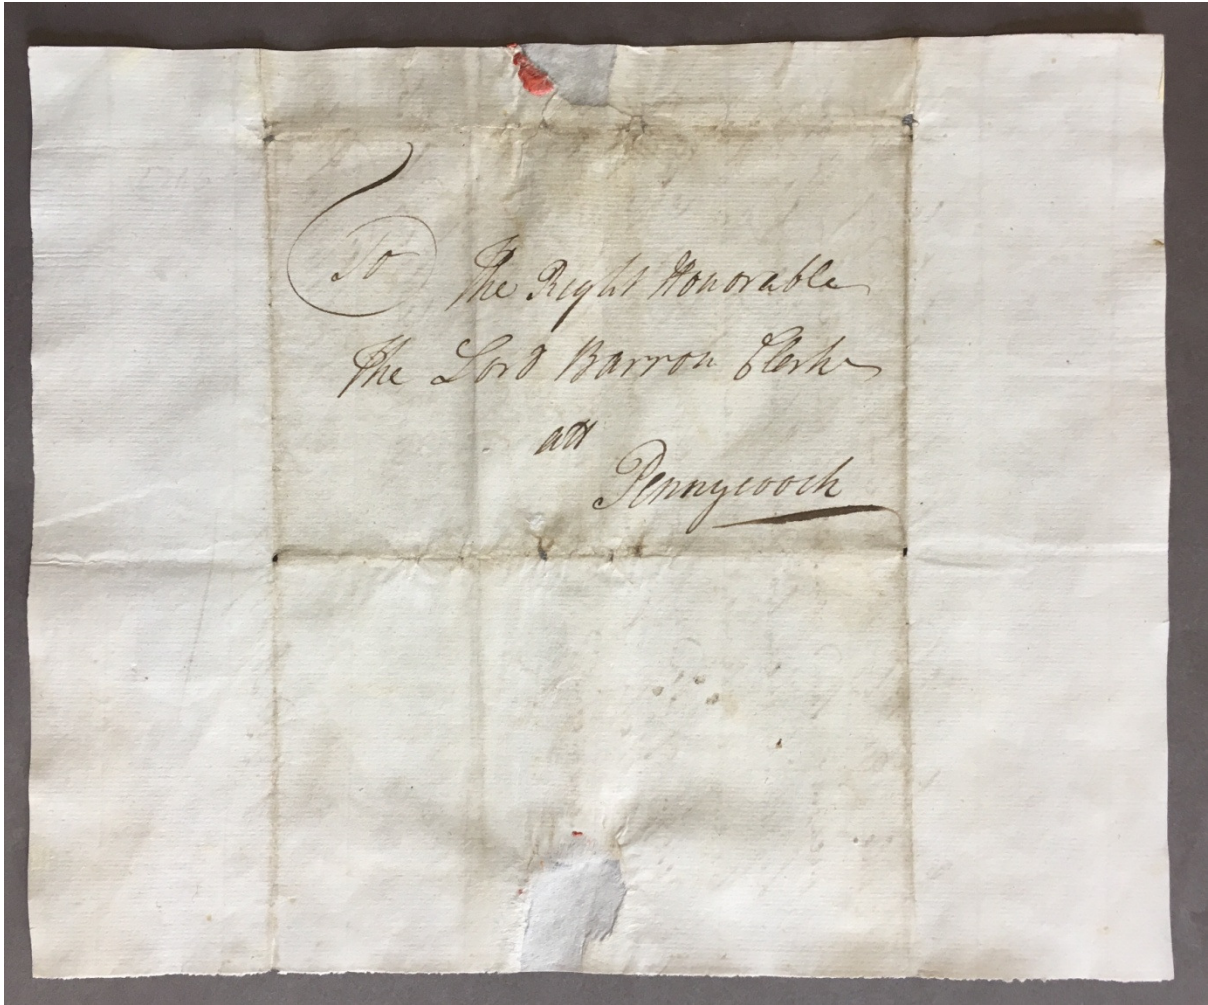 To The Right Honorable
The Lord Barron Clerk
att
Pennycooch